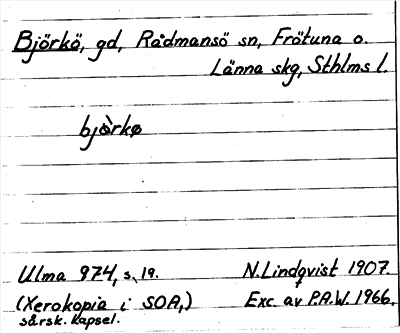 Björkö, gd, Rådmansö sn, Frötuna o.
Länna skg, Sthlms l.
bjò̀rkø
Ulma 974, s. 19.
N. Lindqvist 1907.
(Xerokopia i SOA,)
Exc. av P.A.W. 1966.
särsk. kapsel.